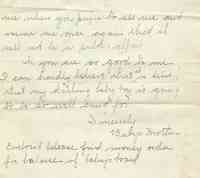 me when you prefer to see me and
assure me once again that it
will not be a public affair.
you are so good to me
I can hardly believe that it is true,
that my darling baby boy is going
to be so well cared for.
Sincerely
Baby's Mother
Enclosed please find money order
for balance of baby's board